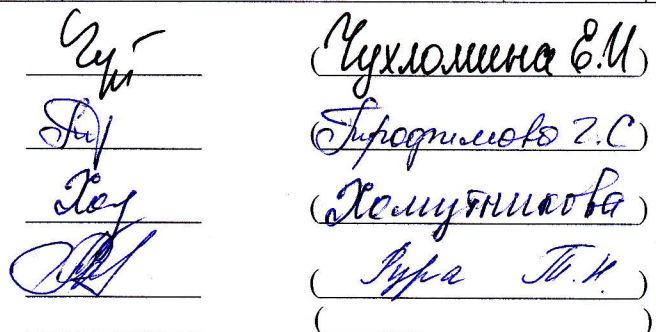 Чух (Чухломина Е.И)
(Трофимова Г.С)
Хом (Хомутникова)
(Гура Т.Н.)
( )